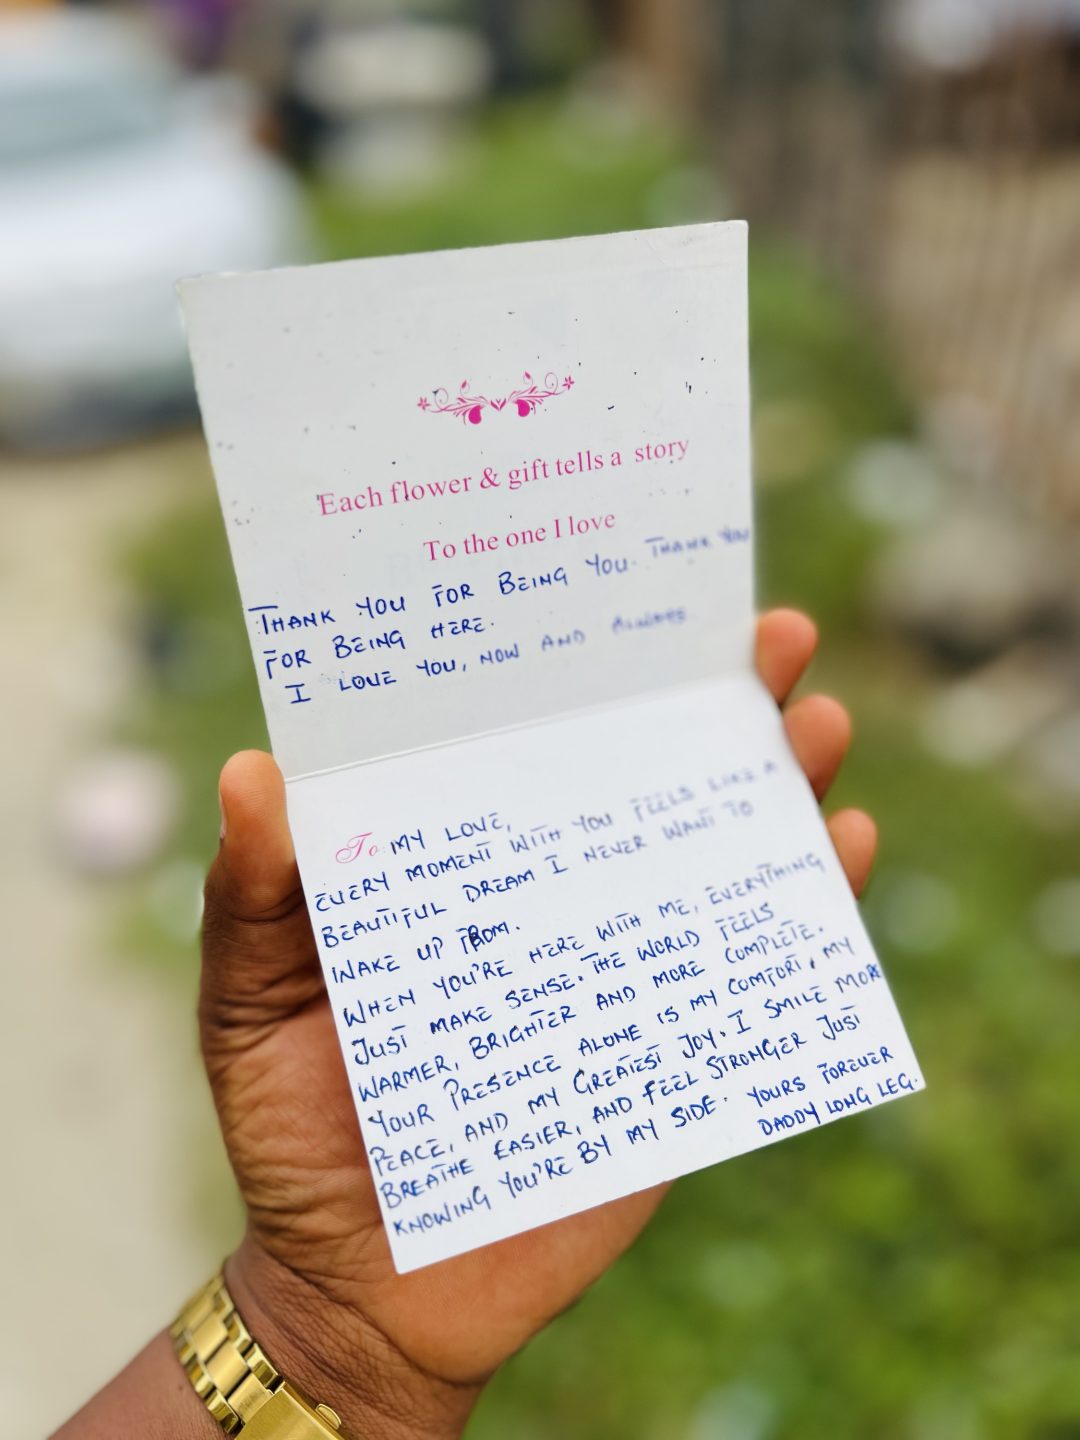 Each flower & gift tells a story
To the one I love
THANK YOU FOR BEING YOU. THANK YOU
FOR BEING HERE.
I LOVE YOU, NOW AND ALWAYS
To: MY LOVE,
EVERY MOMENT WITH YOU FEELS LIKE A
BEAUTIFUL DREAM I NEVER WANT TO
WAKE UP FROM.
WHEN YOU'RE HERE WITH ME, EVERYTHING
JUST MAKE SENSE. THE WORLD FEELS
WARMER, BRIGHTER AND MORE COMPLETE.
YOUR PRESENCE ALONE IS MY COMFORT, MY
PEACE, AND MY GREATEST JOY. I SMILE MORE
BREATHE EASIER, AND FEEL STRONGER JUST
KNOWING YOU'RE BY MY SIDE. YOURS FOREVER
DADDY LONG LEG.